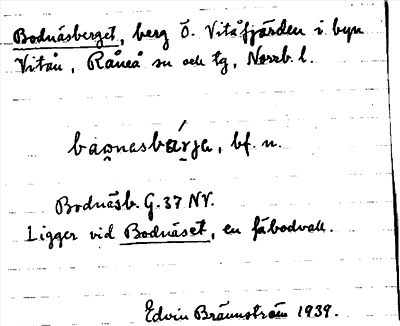 Bodnäsberget, berg Ö. Vitåfjärden i byn
Vitån, Råneå sn och tg, Norrb. l.
baọnasbáṛja, bf. n.
Bodnäsb. G. 37 NV.
Ligger vid Bodnäset, en fäbodvall.
Edvin Brännström 1939.